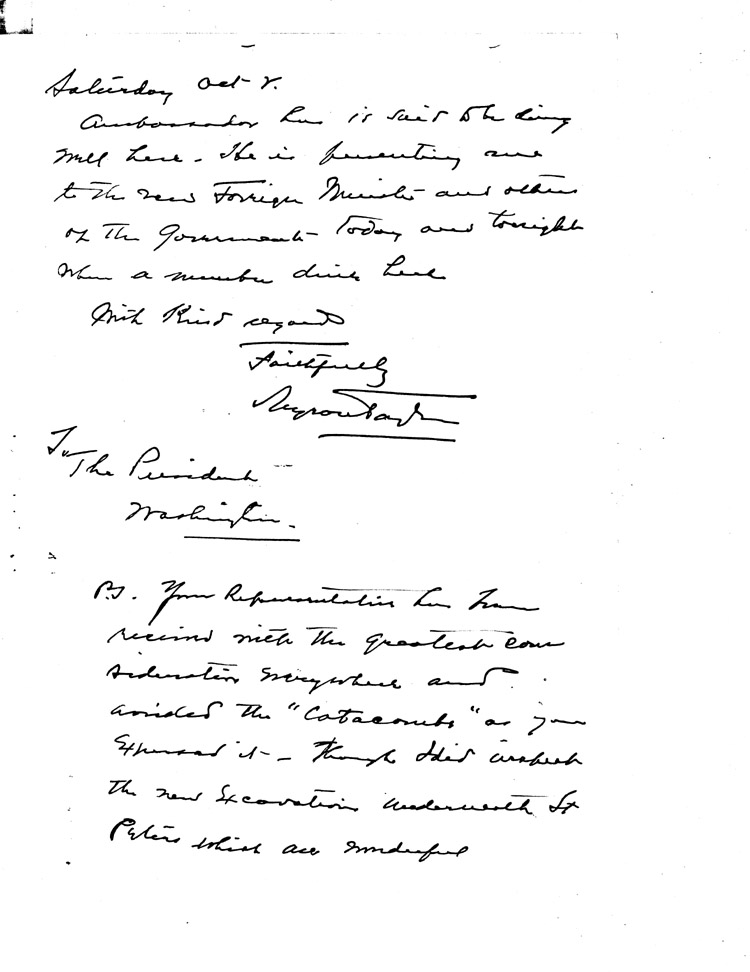 Saturday Oct 2.
Ambassador here is said to be doing
well here - He is presenting me
to the new Foreign Minister and others
of the Government today and tonight
when a number dine here
With Kind regards
Faithfully
Myron Taylor
To
The President
Washington.
P.S. Your Representative has been
received with the greatest con
sideration everywhere and
avoided the "Catacombs" as you
Expressed it - though I did inspect
the new Excavations underneath St
Peters which are wonderful